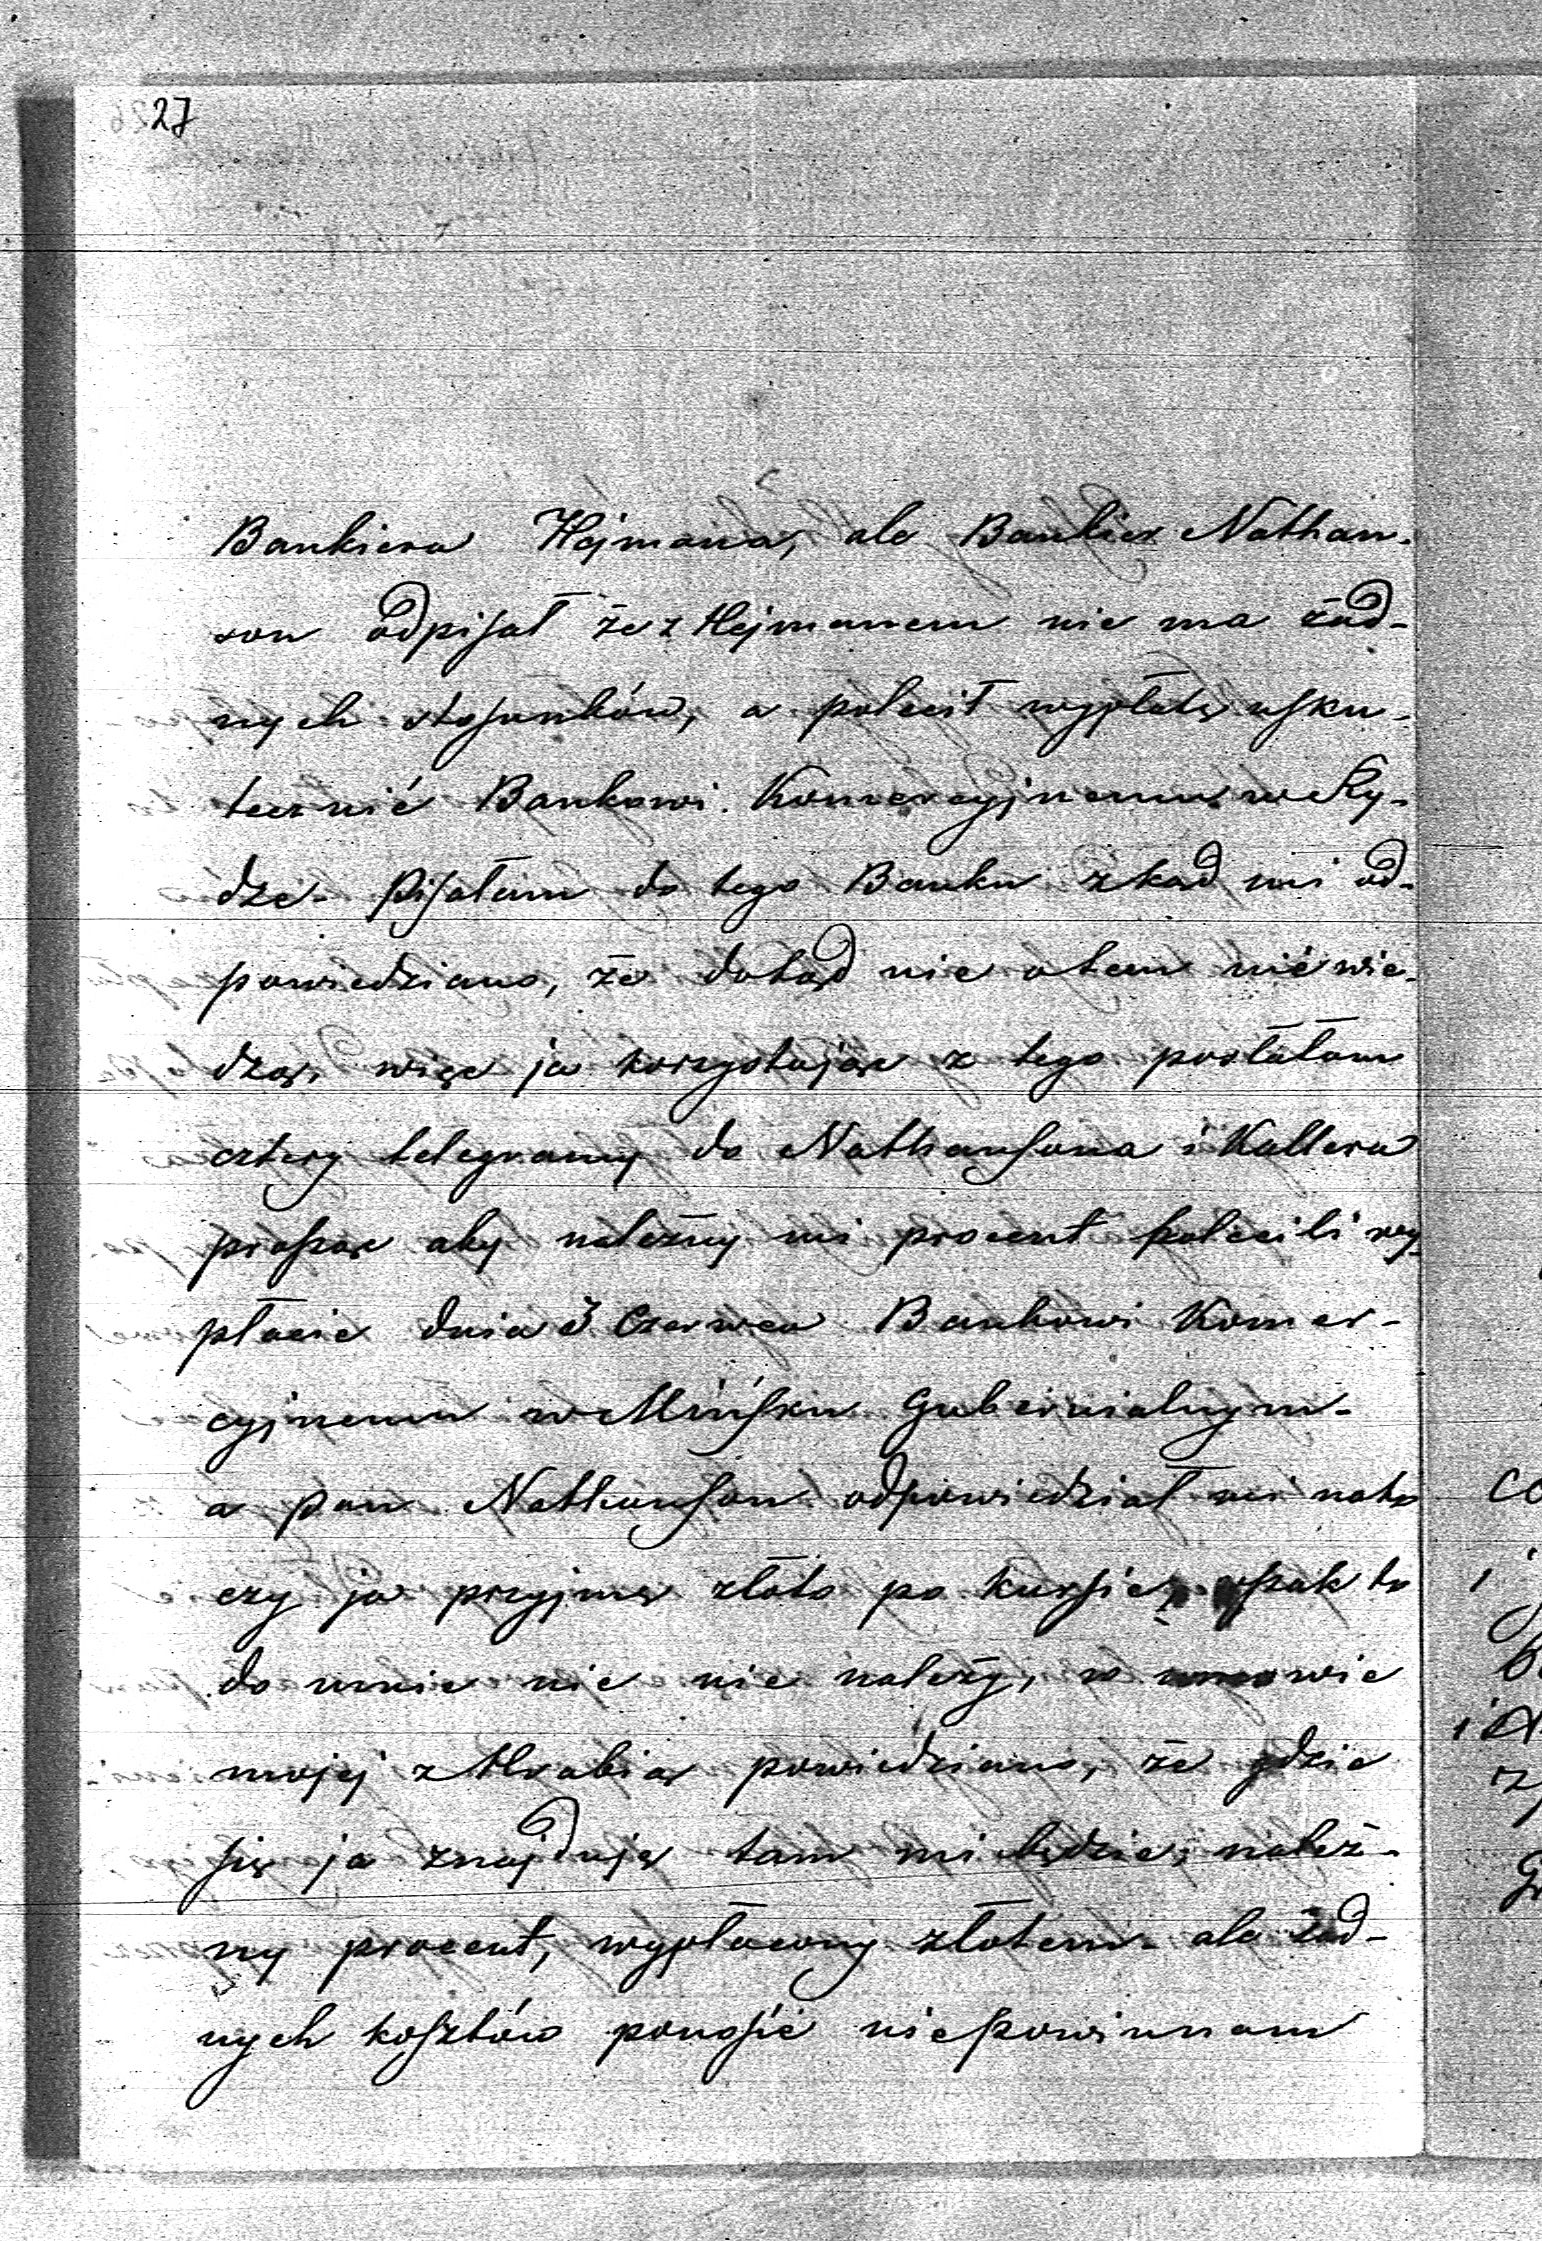 27
Bankiera Hejmana, ale Bankier Nathan-
son odpisał że z Hejmanem nie ma żad-
nych stosunków, a polecił wypłatę usku-
tecznić Bankowi Komercyjnemu w Ry-
dze. Pisałam do tego Banku zkąd mi od-
powiedziano, że dotąd nic otem nie wie-
dzą, więc ja korzystając z tego posłałam
cztery telegramy do Nathansona i Kallera
prosząc aby należny mi procent polecili wy-
płacić dnia 3 Czerwca Bankowi Komer-
cyjnemu w Mińsku Gubernialnym-
a pan Nathanson odpowiedział mi nato
czy ja przyjmę złoto po kursie, wszak to
do mnie nic nie należy, w umowie
mojej z Hrabią powiedziano, że gdzie
się ja znajduję tam mi będzie, należ-
ny procent, wypłacony złotem- ale żad-
nych kosztów ponosić niepowinnam